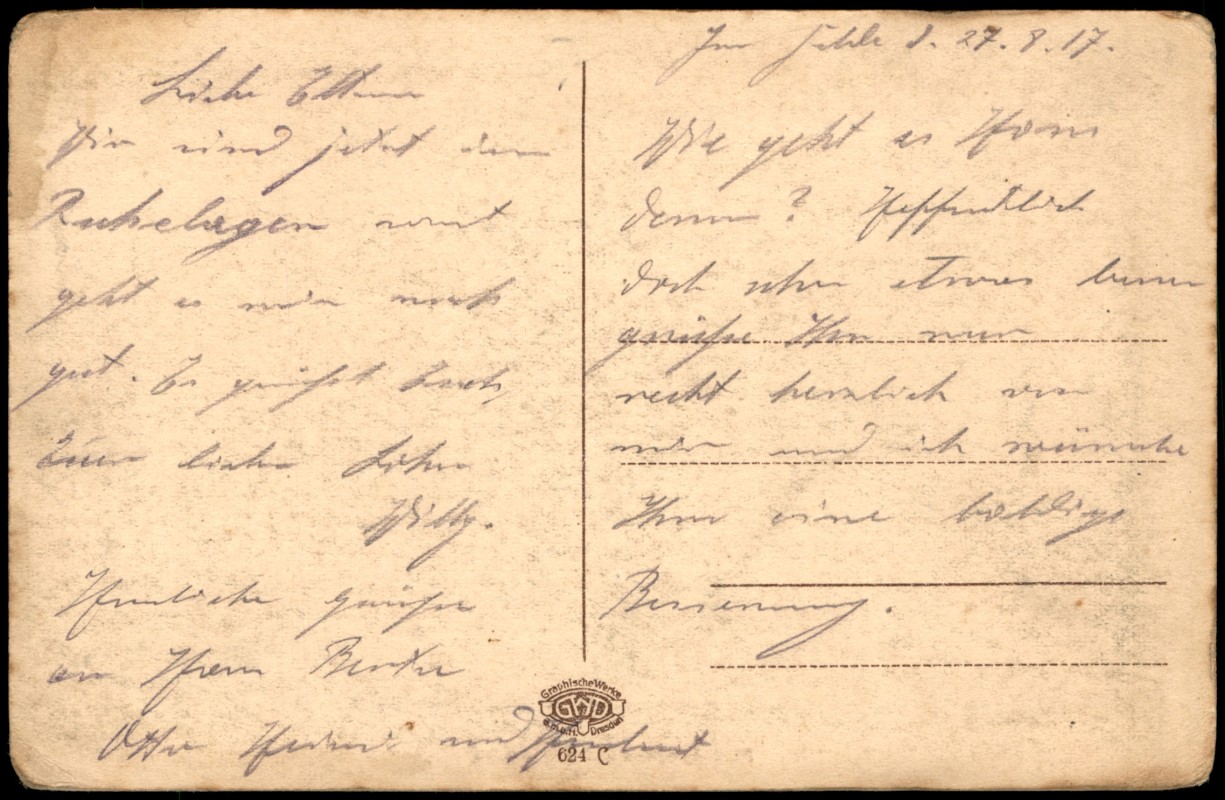 Im Felde d. 27.8.17.
Liebe Eltern
Wir sind jetzt im
Ruhelager sonst
geht es mir noch
gut. Es grüßt Euch
Euer lieber Sohn
Willy.
Herzliche Grüße
an Herrn
Otto und
Wie geht es Herrn
denn? Hoffentlich
doch schon etwas besser
grüße Ihn nur
recht herzlich von
mir und ich wünsche
Ihm eine baldige
Besserung.
Graphische Werke
GWD
G.m.b.H. Dresden
624 C